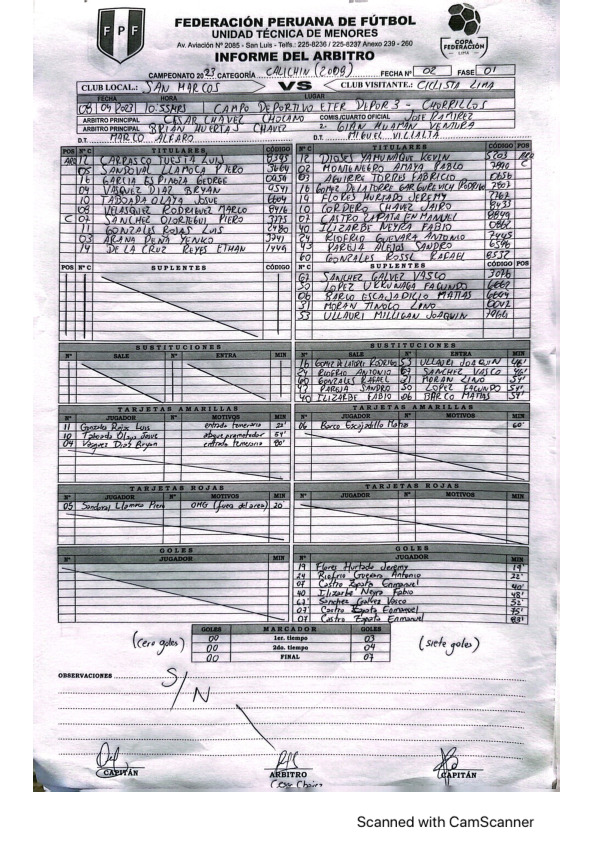 FPF
FEDERACIÓN PERUANA DE FÚTBOL
UNIDAD TÉCNICA DE MENORES
Av. Aviación Nº 2085 - San Luis - Telfs.: 225-8236 / 225-8237 Anexo 239 - 260
INFORME DEL ARBITRO
COPA FEDERACIÓN LIMA
CAMPEONATO 2023 CATEGORÍA CALICHIN (2009) FECHA Nº 02 FASE 01
CLUB LOCAL: SAN MARCOS VS CLUB VISITANTE: CICLISTA LIMA
FECHA HORA LUGAR
10:55HRS CAMPO DEPORTIVO ETER DEPOR 3 - CHORRILLOS
ARBITRO PRINCIPAL CESAR CHAVEZ CHOLAN COMIS/CUARTO OFICIAL JOSE RAMIREZ
ARBITRO PRINCIPAL BRIAN HUERTAS CHAVEZ 2. GIAN HUAMAN VENTURA
D.T. MARCO ALFARO D.T. MIGUEL VILLALTA
POS Nº C TITULARES CÓDIGO POS Nº C TITULARES CÓDIGO POS
12 CARRASCO TUESTA LUIS 12 DIOSES YAMUNAQUE KEVIN
05 SANDOVAL LLAMOCA PIERO 02 MONTENEGRO AMAYA PABLO C
16 GARCIA ESPINOZA GEORGE 03 AGUIRRE TORRES FABRICIO
04 VASQUEZ DIAZ BRYAN 0541 16 GOMEZ DE LATORRE GARGUREVICH RODRIGO
10 TABOADA OLAYA JOSUE 19 FLORES HURTADO JEREMY
VELASQUEZ RODRIGUEZ MARCO 10 CORDERO CHAVEZ JAIRO
C 07 SANCHEZ OLORTEGUI PIERO 07 CASTRO ZAPATA ENMANUEL
11 GONZALES ROJAS LUIS 40 ILIZARBE NEYRA FABIO
03 ARANA PEÑA YENKO 24 RIOFRIO GUEVARA ANTONIO
14 DE LA CRUZ REYES ETHAN 43 PAREJA ALEJOS SANDRO
60 GONZALES ROSSL RAFAEL
POS Nº C SUPLENTES CÓDIGO POS Nº C SUPLENTES CÓDIGO POS
SANCHEZ GALVEZ VASCO
50 LOPEZ URRUNAGA FACUNDO
06 BARCO ESCAJADILLO MATIAS
31 MORAN TINOCO LINO
53 ULLAURI MILLIGAN JOAQUIN
SUSTITUCIONES SUSTITUCIONES
Nº SALE Nº ENTRA MIN Nº SALE Nº ENTRA MIN
16 GOMEZ DE LATORRE RODRIGO 53 ULLAURI JOAQUIN 46'
24 RIOFRIO ANTONIO SANCHEZ VASCO 46'
60 GONZALES RAFAEL MORAN LINO
43 PAREJA SANDRO 50 LOPEZ FACUNDO
40 ILIZARBE FABIO 06 BARCO MATIAS
TARJETAS AMARILLAS TARJETAS AMARILLAS
Nº JUGADOR Nº MOTIVOS MIN Nº JUGADOR Nº MOTIVOS MIN
11 Gonzales Rojas Luis entrada temeraria 06 Barco Escajadillo Matias 60'
10 Taboada Olaya Josue ataque prometedor
04 Vasquez Diaz Bryan entrada temeraria
TARJETAS ROJAS TARJETAS ROJAS
Nº JUGADOR Nº MOTIVOS MIN Nº JUGADOR Nº MOTIVOS MIN
05 Sandoval Llamoca Piero OMG (fuera del area) 20'
GOLES GOLES
Nº JUGADOR MIN Nº JUGADOR MIN
19 Flores Hurtado Jeremy 19'
24 Riofrio Guevara Antonio 22'
07 Castro Zapata Enmanuel 40'
40 Ilizarbe Neyra Fabio 48'
Sanchez Galvez Vasco 52'
07 Castro Zapata Enmanuel 75'
07 Castro Zapata Enmanuel
GOLES MARCADOR GOLES
(cero goles) 00 1er. tiempo 03 (siete goles)
00 2do. tiempo 04
00 FINAL 07
OBSERVACIONES S/N
CAPITÁN ARBITRO CAPITÁN
Scanned with CamScanner